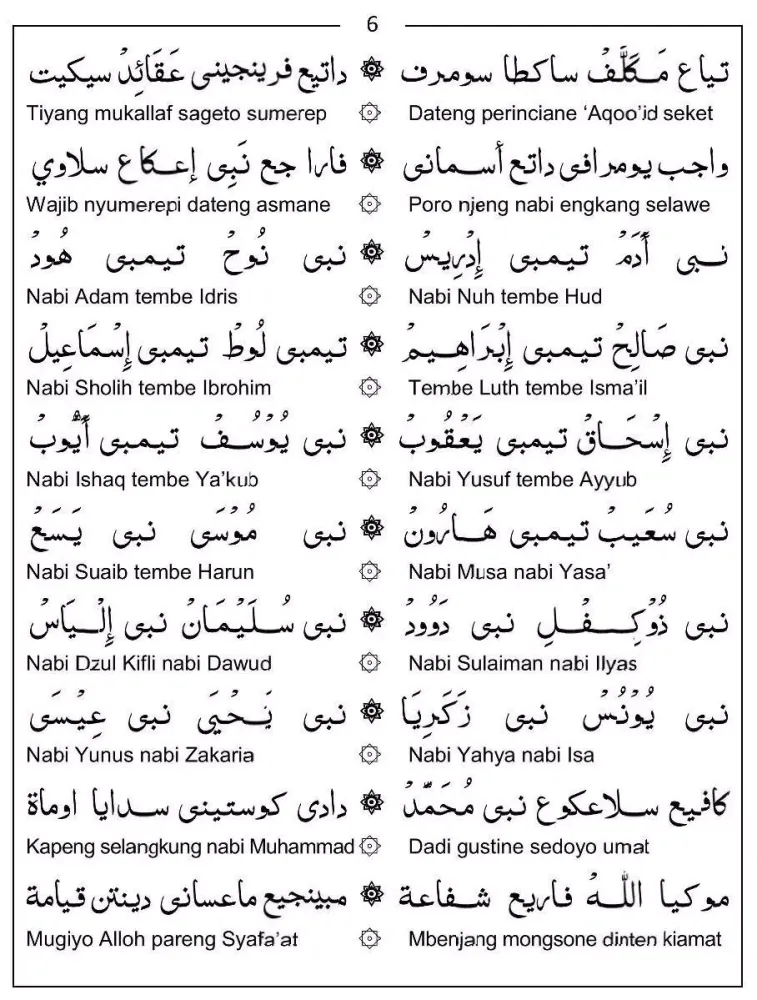 6
تياع مَكَلَّفْ ساكطا سومرف ۞ داتيع فرينجينى عَقَائِدْ سيكيت
Tiyang mukallaf sageto sumerep ۞ Dateng perinciane ‘Aqoo’id seket
واجب يومرافى داتع أسمانى ۞ فارا جع نَبِى إعكاع سلاوي
Wajib nyumerepi dateng asmane ۞ Poro njeng nabi engkang selawe
نبى أَدَمْ تيمبى إِدْرِيسْ ۞ نبى نُوحْ تيمبى هُودْ
Nabi Adam tembe Idris ۞ Nabi Nuh tembe Hud
نبى صَالِحْ تيمبى إِبْرَاهِيمْ ۞ تيمبى لُوطْ تيمبى إِسْمَاعِيلْ
Nabi Sholih tembe Ibrohim ۞ Tembe Luth tembe Isma’il
نبى إِسْحَاقْ تيمبى يَعْقُوبْ ۞ نبى يُوْسُفْ تيمبى أَيُّوبْ
Nabi Ishaq tembe Ya’kub ۞ Nabi Yusuf tembe Ayyub
نبى سُعَيبْ تيمبى هَارُونْ ۞ نبى مُوْسَى نبى يَسَعْ
Nabi Suaib tembe Harun ۞ Nabi Musa nabi Yasa’
نبى ذُوكِفْلِ نبى دَوُودْ ۞ نبى سُلَيْمَانْ نبى إِلْيَاسْ
Nabi Dzul Kifli nabi Dawud ۞ Nabi Sulaiman nabi Ilyas
نبى يُونُسْ نبى زَكَرِيَا ۞ نبى يَحْيَى نبى عِيْسَى
Nabi Yunus nabi Zakaria ۞ Nabi Yahya nabi Isa
كافيع سلاعكوع نبى مُحَمَّدْ ۞ دادى كوستينى سدايا اوماة
Kapeng selangkung nabi Muhammad ۞ Dadi gustine sedoyo umat
موكيا اللّٰهُ فاريع شفاعة ۞ مبينجيع ماعسانى دينتن قيامة
Mugiyo Alloh pareng Syafa’at ۞ Mbenjang mongsone dinten kiamat